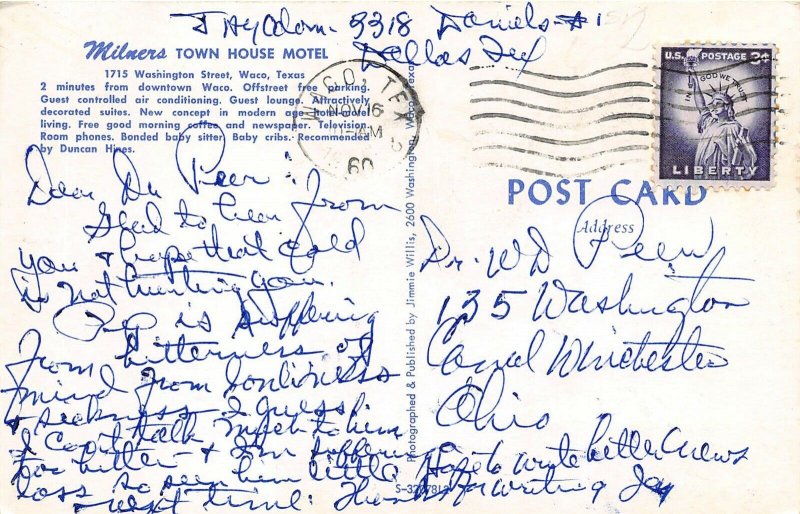 J Haydon - 3318 Daniels - #1
Dallas Tex
Milners TOWN HOUSE MOTEL
1715 Washington Street, Waco, Texas
2 minutes from downtown Waco. Offstreet free parking.
Guest controlled air conditioning. Guest lounge. Attractively
decorated suites. New concept in modern age hotel-motel
living. Free good morning coffee and newspaper. Television.
Room phones. Bonded baby sitter. Baby cribs. Recommended
by Duncan Hines.
WACO, TEX
NOV 16
AM
60
U.S. POSTAGE 3¢
IN GOD WE TRUST
LIBERTY
Dear Dr Peer:
Glad to hear from
you & hope that cold
is not hurting you.
Pep is suffering
from bitterness of
mind from lonliness
& seekness I guess.
I can't talk much to him
too bitter & I'm suffering
loss so seen him little
next time. Thanks for writing Jay
Hope to write better news
Photographed & Published by Jimmie Willis, 2600 Washington, Waco, Texas
S-32781
POST CARD
Address
Dr. W D Peer
135 Washington
Canal Winchester
Ohio